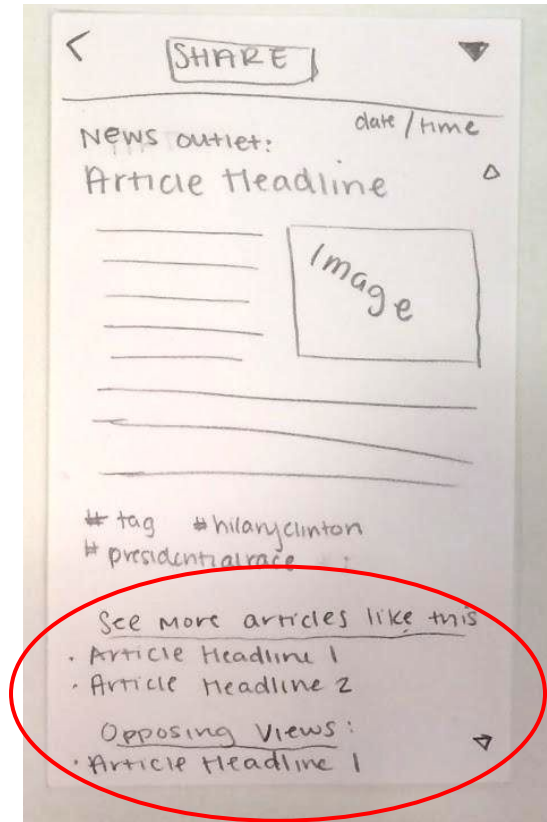 SHARE
date/time
News outlet:
Article Headline
Image
# tag #hilaryclinton
# presidentialrace
See More articles like this
· Article Headline 1
· Article Headline 2
Opposing Views:
· Article Headline 1